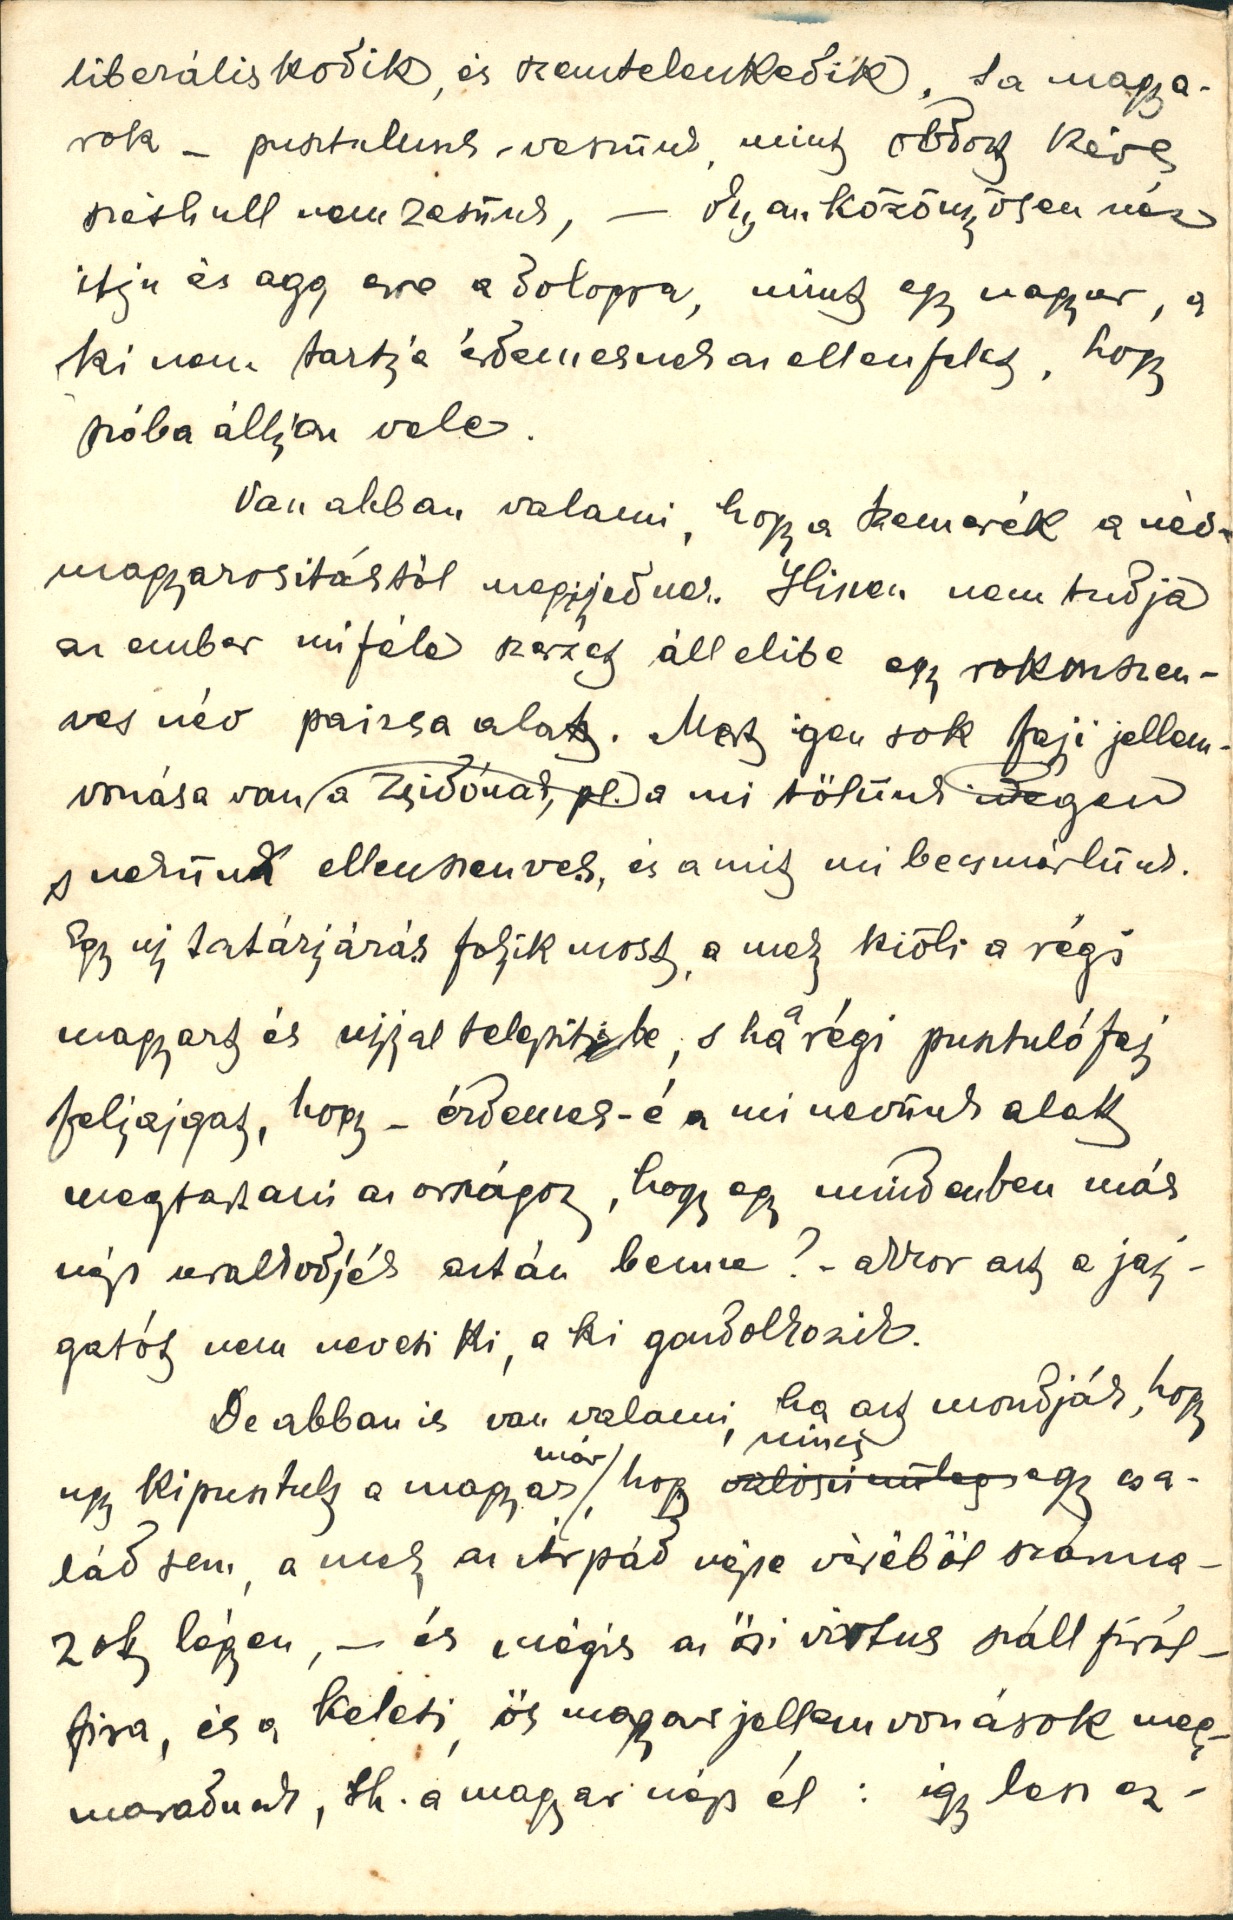 liberáliskodik, és szemtelenkedik, s a magya-
rok – pusztulunk-veszünk, mint oldott kéve
széthull nemzetünk, – Olyan közönyösen néz
ifju és agg erre a dologra, mint egy magyar, a
ki nem tartja érdemesnek az ellenfelet, hogy
szóba álljon vele.
Van abban valami, hogy a kamarák a név-
magyarositástól megijednek. Hiszen nem tudja
az ember miféle szerzet áll elibe egy rokonszen-
ves név paizsa alatt. Mert igen sok faji jellem-
vonása van a zsidónak, pl. a mi tőlünk idegen
s nekünk ellenszenves, és a mit mi becsmérlünk.
Egy uj tatárjárás folyik most, a mely kiöli a régi
magyart és ujjal telepiti be, s ha a régi pusztuló faj
feljajgat, hogy – érdemes-é a mi nevünk alatt
megtartani az országot, hogy egy mindenben más
nép uralkodjék aztán benne? – akkor azt a jaj-
gatót nem neveti ki, a ki gondolkozik.
De abban is van valami, ha azt mondják, hogy
ugy kipusztult a magyar már, hogy nincs valószinüleg egy csa-
lád sem, a mely az Árpád népe véréből szárma-
zott légyen, – és mégis az ősi virtus száll firól-
fira, és a keleti, ős magyar jellemvonások meg-
maradnak, th. a magyar nép él : igy lesz ez-